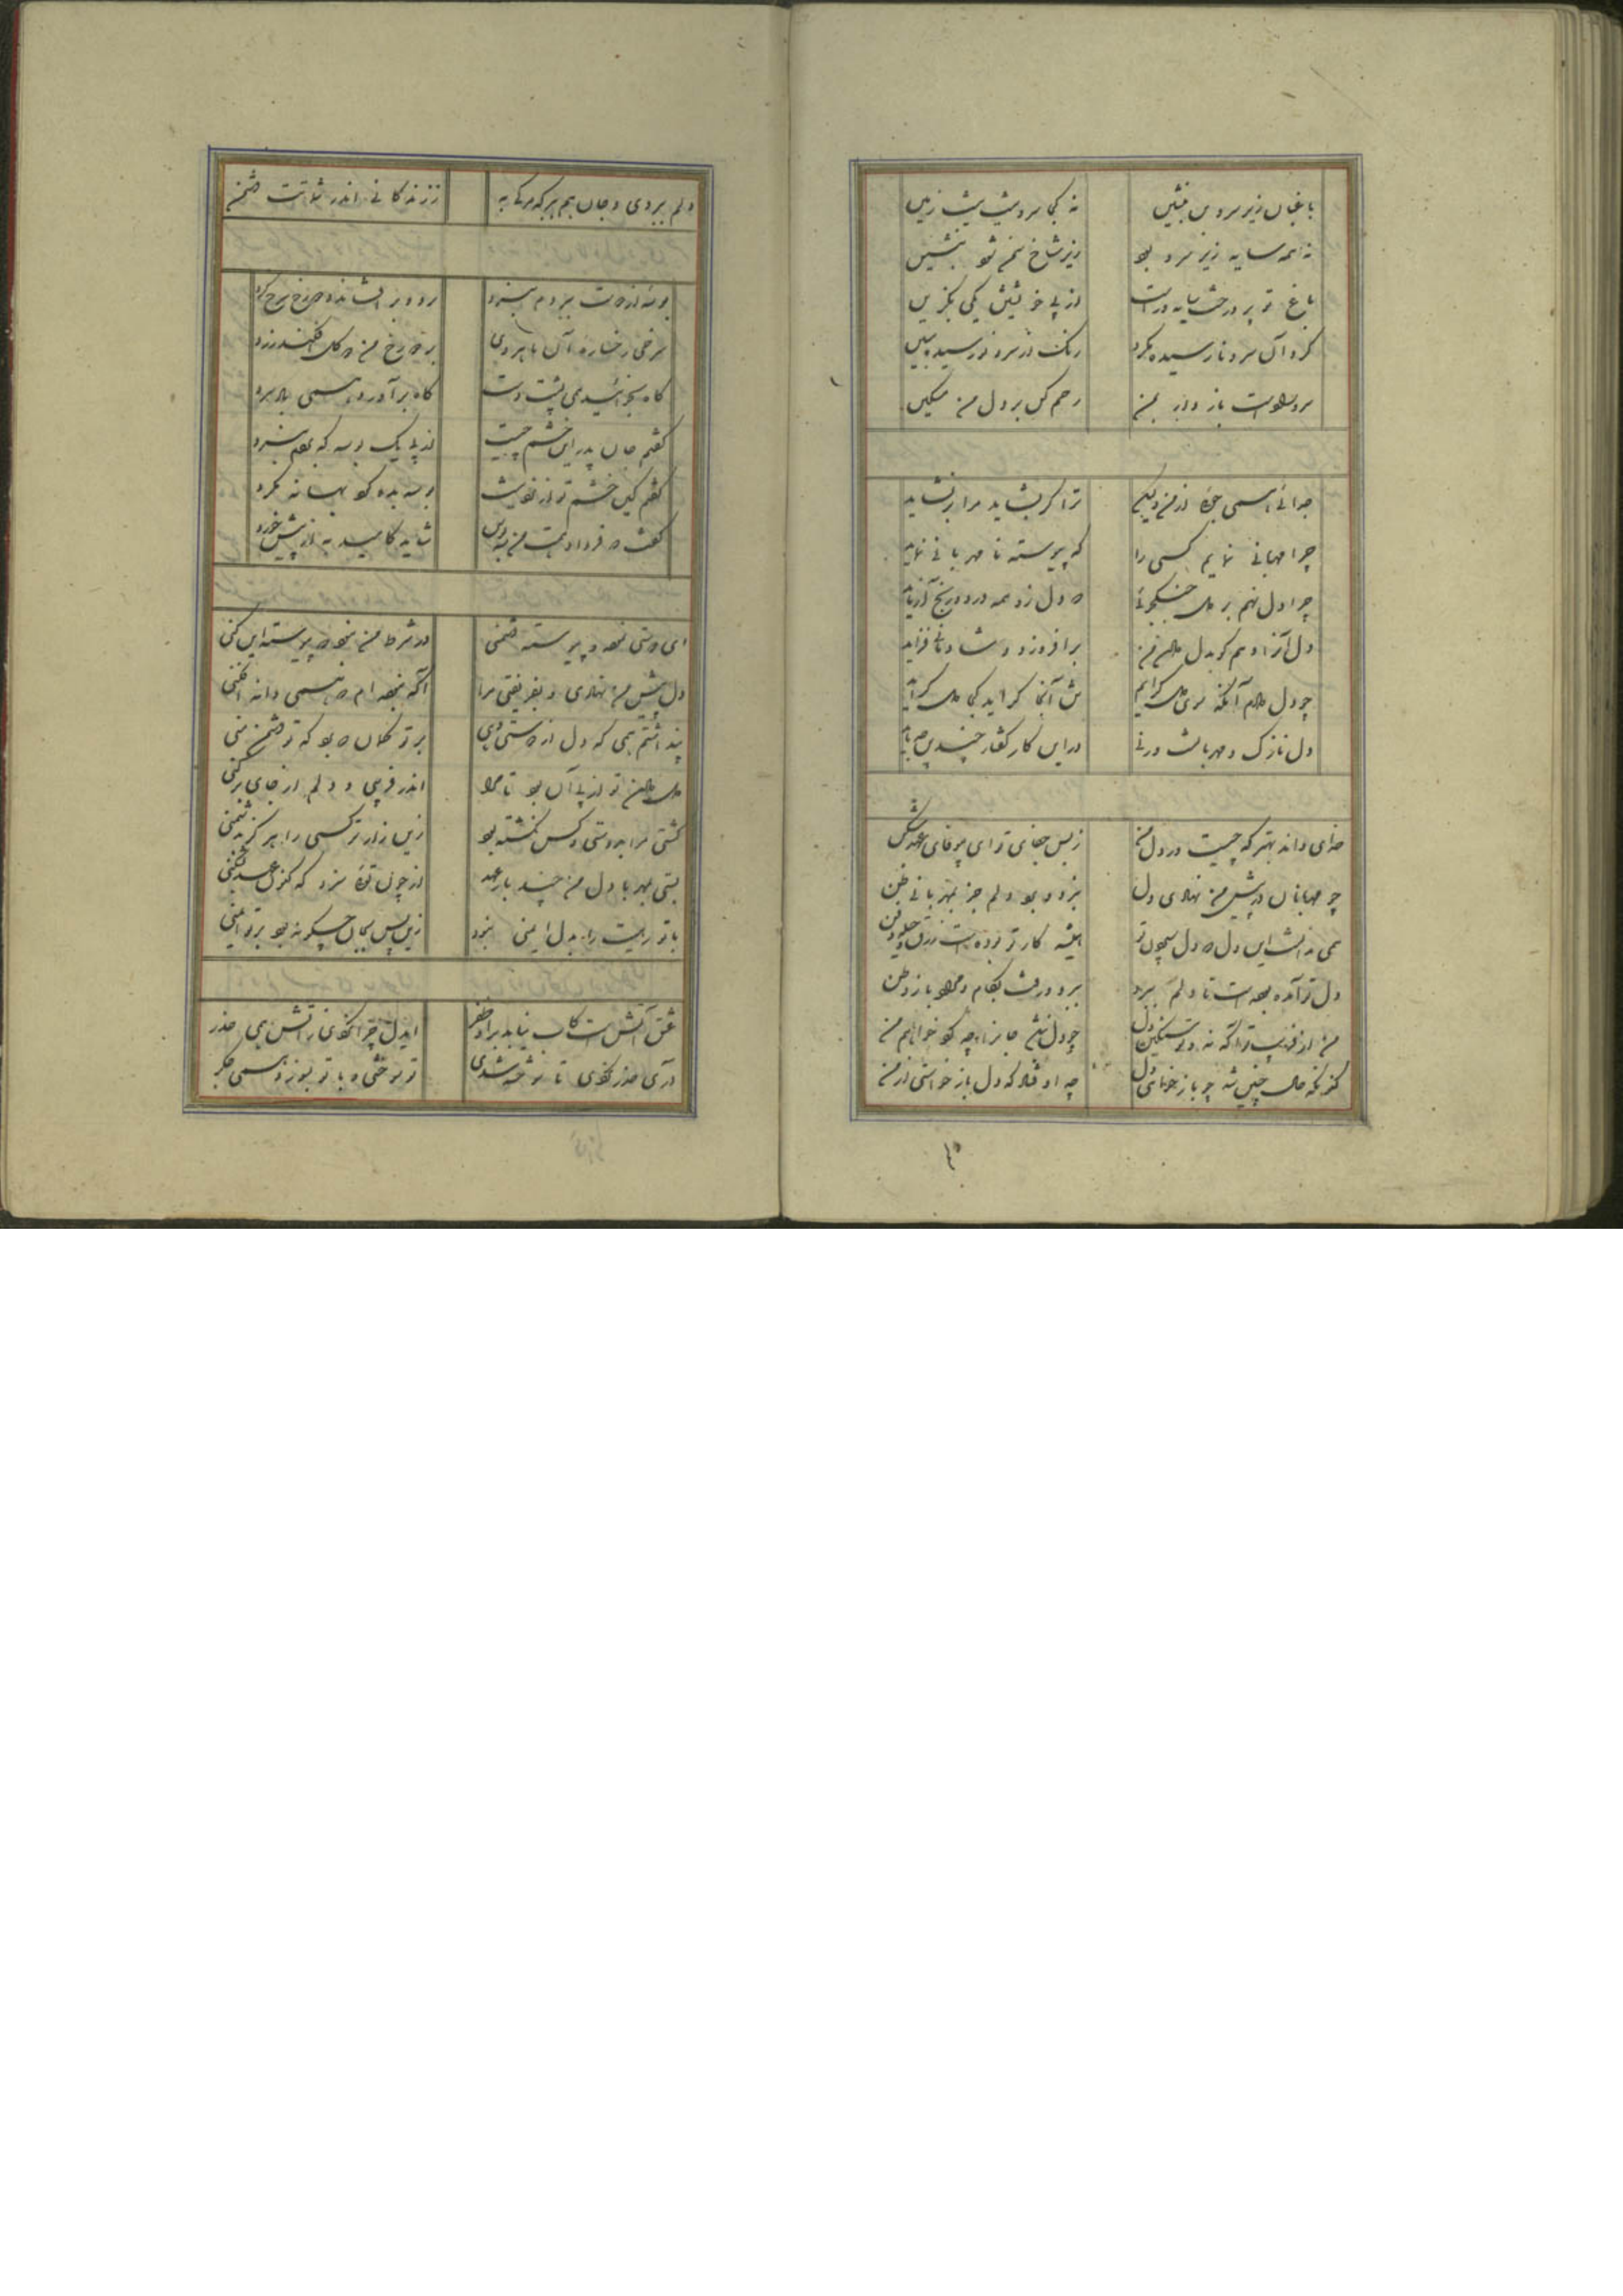 باغبان زیر سرو بن منشین نه کی سرو تست پیش زمین
نه همه سایه زیر سرو بود زیر شاخ سمن شو بنشین
باغ تو پر درخت سایه ورست از پی خویشتن یکی بگزین
گرد آن سرو نارسیده مگرد رنگ در سرو نارسیده مبین
سرو باز ده بمن رحم کن بر دل من مسکین
جدائی همی جوئی از من ولیکن ترا گر بشاید مرا بر نشاید
چرا مهربانی نمایم کسی را که پیوسته نا مهربانی نماید
چرا دل نهم بر جنگجوئی دل زو همه درد و رنج آزماید
دل آنرا دهم کو بدل بر افروزد و شادمانی فزاید
چو دل آنگه سوی گرایم آنجا گراید کجا گراید
دل نازک و مهربانست ورنی در این کار گفتار چندین نباید
خدای داند بهتر که چیست در دل من ز بس جفای تو ای بیوفای عهد شکن
چو مهربانان در پیش من نهادی دل نبود دلم جز بمهربانی ظن
همی ندانست این دل که دل سپردن تو همیشه کار تو بوده است زرق و حیله و فن
دل تو آمده بوده است تا دلم ببرد ببرد و رفت بکام و مراد باز وطن
من از فریب تو آگه نه و تو سنگین دل چو دل نباشد جانرا چه گونه خواهم من
کنون که حال چنین شد چو باز خواهی دل چه اوفتاد که دل باز خواستی از من
دلم ببردی و جان هم ببر که مرگ به ز زندگانی اندر شماتت دشمن
بوسه از دوست ببردم بنرد رود بر افشاند و رخ سرخ کرد
سرخی رخساره آن ماهروی بر رخ من گل افکند زرد
گاه بخائیدی پشت دست گاه بر آورد همی باد سرد
گفتم جان پدر این خشم چیست از پی یک بوسه که بردم بنرد
گفتم کین خشم تو از نرد نیست بوسه بده گرد بهانه مگرد
گفت که فردا دهمت من سه بوس شاید کامید به از پیش خورد
ای دشمنی نموده و پیوسته دشمنی در شرط من نبود که پیوسته این کنی
دل پیش من نهادی و بفریفتی مرا آگه نبوده ام که همی دانه افکنی
پنداشتم همی که دل از دوستی دهی بر تو گمان که بود که تو دشمن منی
تو از پی آن بود تا مرا اندر فریبی و دلم از جای برکنی
کشتی مرا بدوستی و کس نکشته بود زین زارتر کسی را هرگز بدشمنی
بستی بمهر با دل من چند بار عهد از چون توئی سزد که کنون عهد بشکنی
با تو رهیت را بدل ایمنی نبود زین پس بجان چگونه بود بر تو ایمنی
عشق آتش است کاب نیابد برو ظفر ایدل چرا نکردی ز آتش همی حذر
آری حذر نکردی تا سوخته شدی تو سوختی و با تو بسوزد همی جگر